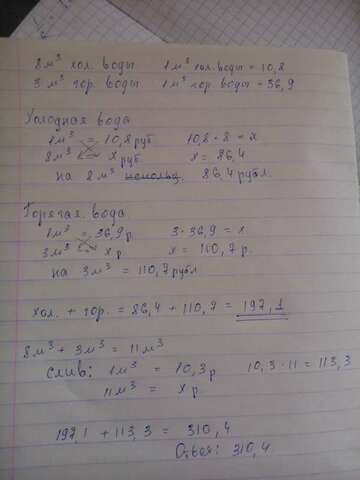 8 м³ хол. воды 1 м³ хол. воды = 10,8
3 м³ гор. воды 1 м³ гор. воды = 36,9
Холодная вода
1 м³ = 10,8 руб. 10,8 · 8 = х
8 м³ = х руб. х = 86,4
на 8 м³ использ. 86,4 рубл.
Горячая вода
1 м³ = 36,9 р. 3 · 36,9 = х
3 м³ = х р. х = 110,7 р.
на 3 м³ = 110,7 рубл.
хол. + гор. = 86,4 + 110,7 = 197,1
8 м³ + 3 м³ = 11 м³
Слив: 1 м³ = 10,3 р. 10,3 · 11 = 113,3
11 м³ = х р.
197,1 + 113,3 = 310,4
Ответ: 310,4